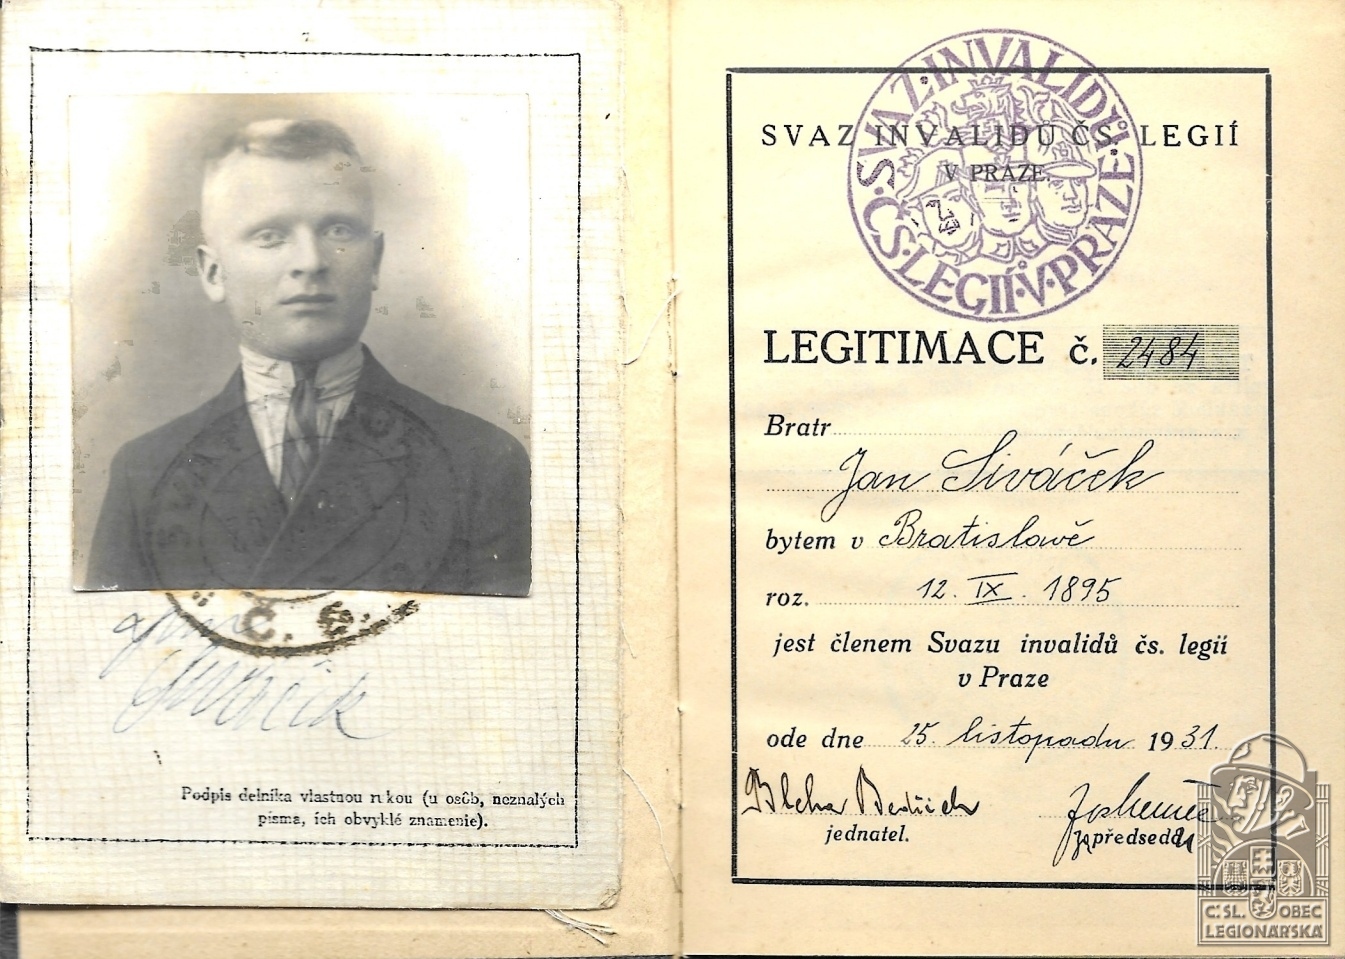 Podpis delníka vlastnou rukou (u osôb, neznalých
písma, ích obvyklé znamenie).
SVAZ INVALIDŮ ČS. LEGIÍ
V PRAZE.
SVAZ·INVALIDŮ·ČS·LEGIÍ·V·PRAZE·
LEGITIMACE č. 2484
Bratr
Jan Siváček
bytem v Bratislavě
roz. 12. IX. 1895
jest členem Svazu invalidů čs. legií
v Praze
ode dne 25. listopadu 1931.
jednatel.
předseda
Č:SL. OBEC
LEGIONÁŘSKÁ